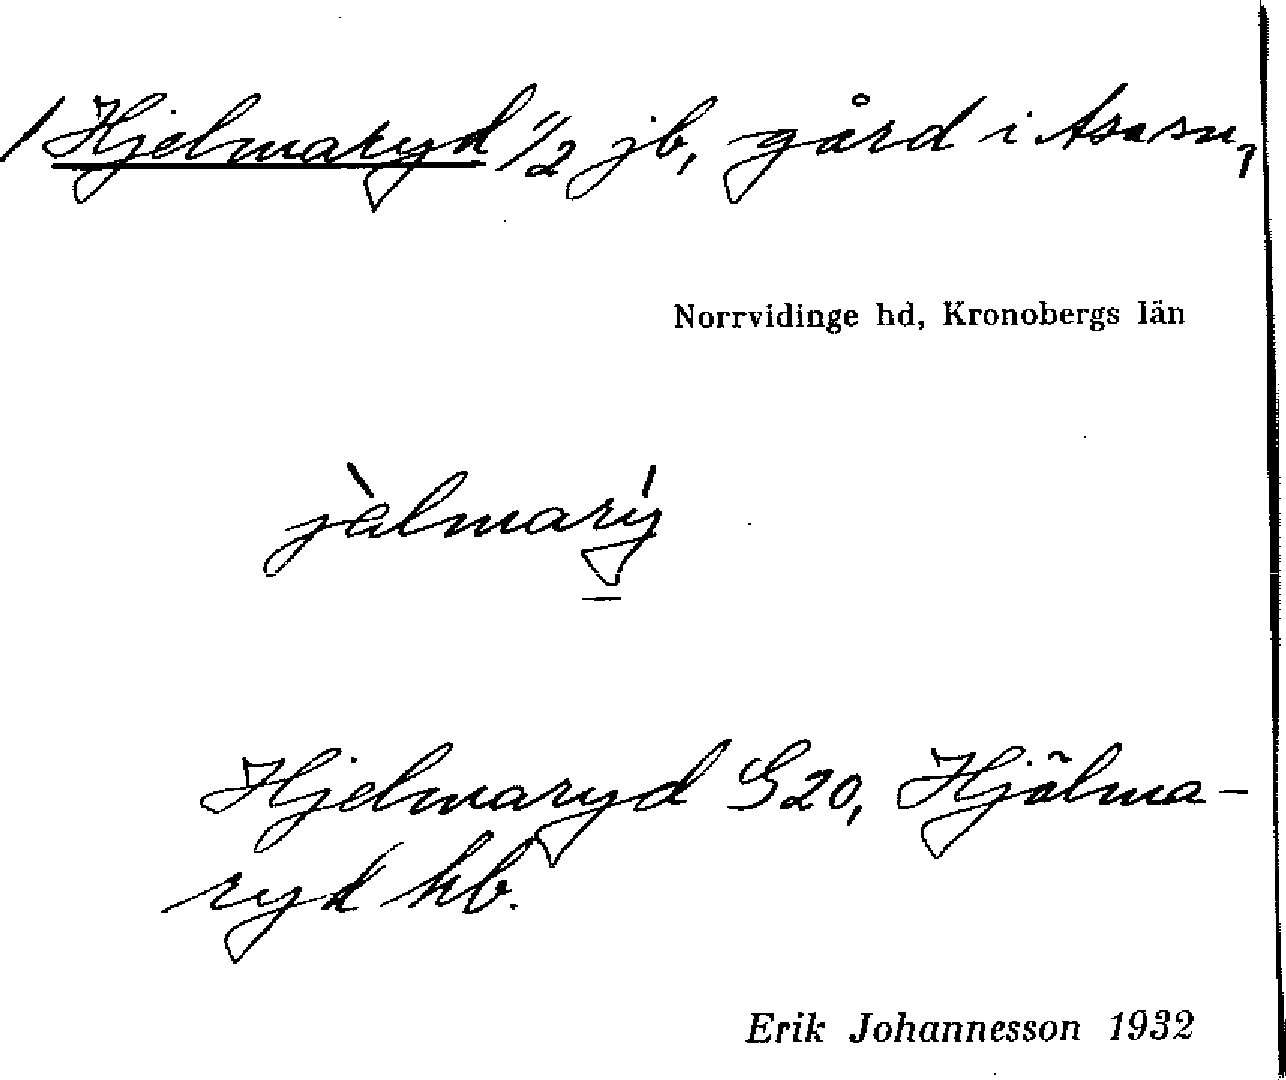 / Hjelmaryd 1/2 jb, gård i Asa sn,
Norrvidinge hd, Kronobergs län
jàlmarý
Hjelmaryd G20, Hjälma-
ryd hb.
Erik Johannesson 1932